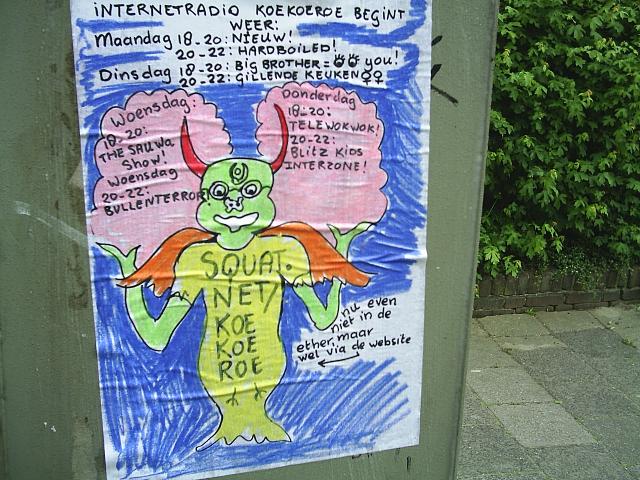 INTERNETRADIO KOEKOEROE BEGINT
WEER:
Maandag 18-20: NIEUW!
20-22: HARDBOILED!
Dinsdag 18-20: BIG BROTHER = you!
20-22: GILLENDE KEUKEN
Woensdag:
18-20:
THE SAUWA
Show!
Woensdag
20-22:
BULLENTERROR
Donderdag
18-20:
TELEWOKWOK!
20-22:
Blitz Kids
INTERZONE!
SQUAT.
NET/
KOE
KOE
ROE
nu even
niet in de
ether, maar
wel via de website